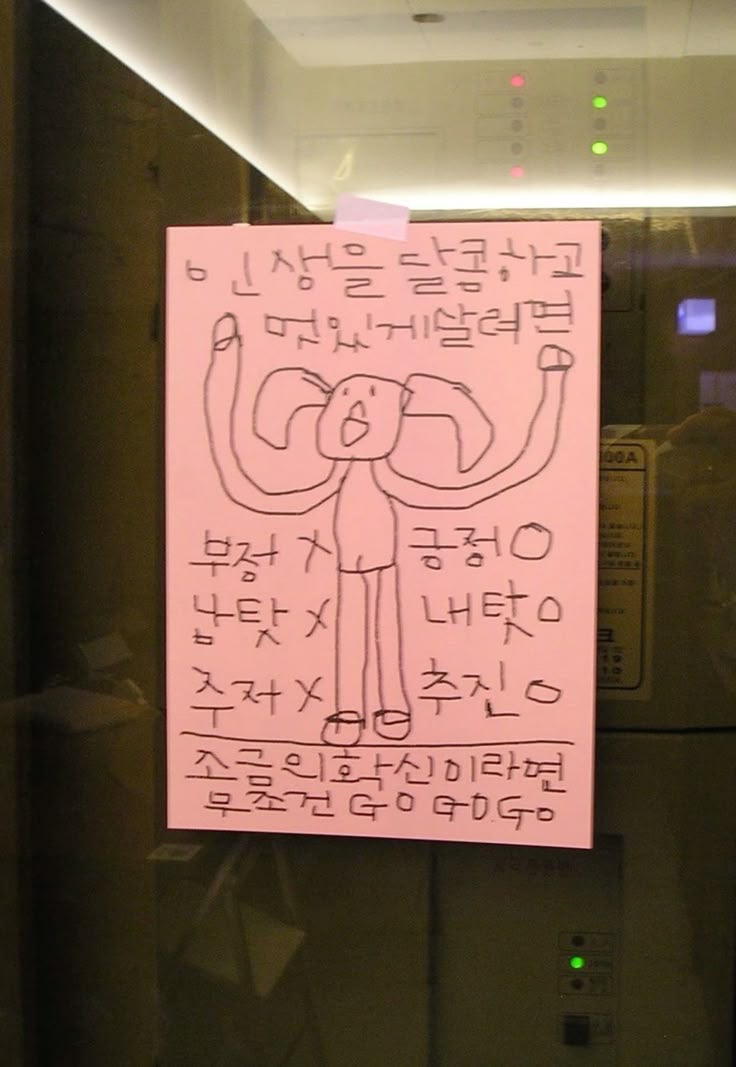 인생을 달콤하고
멋있게살려면
부정 X 긍정 O
남탓 X 내탓 O
주저 X 추진 O
조금의확신이라면
무조건 GO GO GO
00A